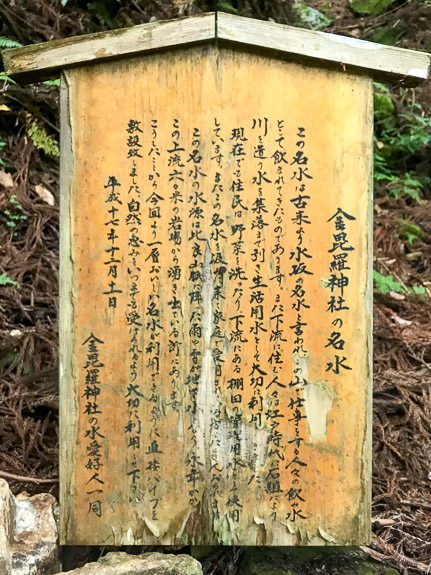 金毘羅神社の名水
この名水は古来より水坂の名水と言われこの山で仕事をする人々の飲み水
として飲まれてきたものであります。また下流に住む人々は江戸時代に石組により
川を造り水を集落まで引き生活用水として大切に利用
現在でも住民は野菜を洗ったり下流にある棚田の 用水として使用
しています。またこの名水を汲
この名水の水源は比良 に降った雨や雪が地下水となり永年かけ
この上流六〇米の岩場から湧き出ている所であります。
こうしたことから今回より一層おいしい名水が利用できるように直接パイプを
敷設致しました。自然の恵みをいつまでも受けられるよう大切に利用して下さい
平成十七年十二月十一日
金毘羅神社の水愛好人一同